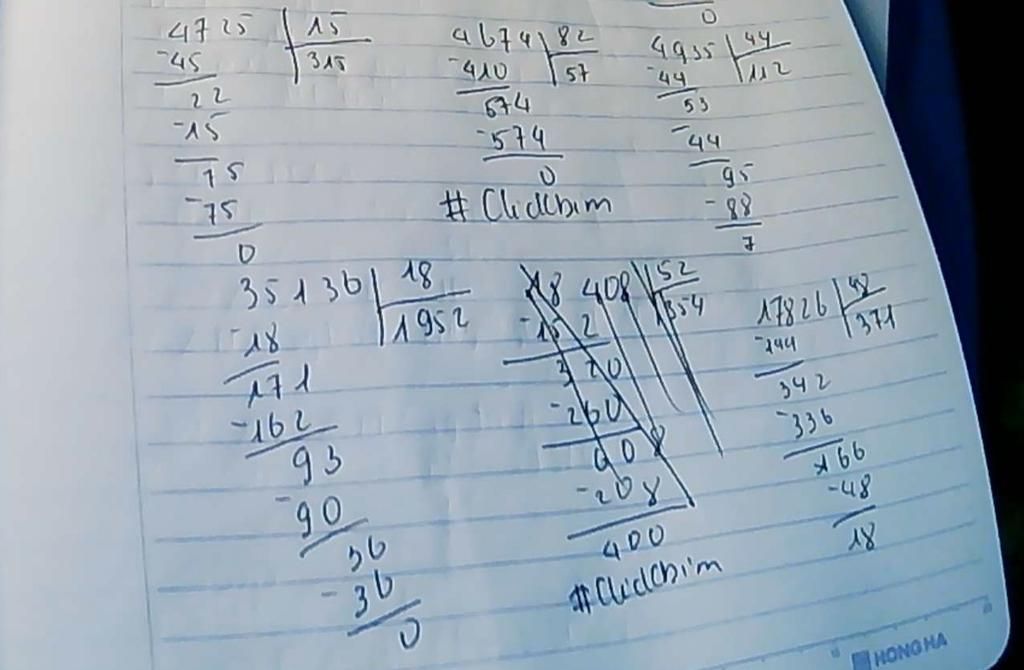 0
4725 15
-45 315
22
-15
75
-75
0
4674 82
-410 57
574
-574
0
#Clidbim
4935 44
-44 112
53
-44
95
-88
7
35136 18
-18 1952
171
-162
93
-90
36
-36
0
18 408 52
-15 2 354
3 20
-260
60 8
-208
400
#Clidbim
17826 48
-144 371
342
-336
166
-48
18
HONG HA